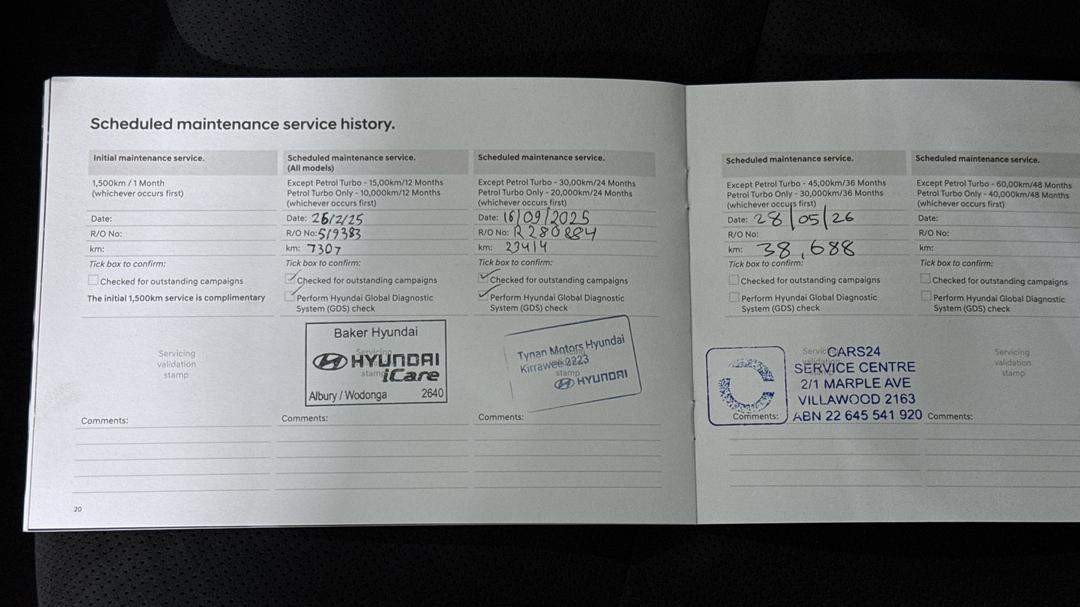 Scheduled maintenance service history.
Initial maintenance service.
1,500km / 1 Month
(whichever occurs first)
Date:
R/O No:
km:
Tick box to confirm:
Checked for outstanding campaigns
The initial 1,500km service is complimentary
Servicing
validation
stamp
Comments:
Scheduled maintenance service.
(All models)
Except Petrol Turbo - 15,00km/12 Months
Petrol Turbo Only - 10,000km/12 Months
(whichever occurs first)
Date: 26/2/25
R/O No: 519383
km: 7307
Tick box to confirm:
Checked for outstanding campaigns
Perform Hyundai Global Diagnostic
System (GDS) check
Baker Hyundai
Servicing
HYUNDAI
stamp
iCare
Albury / Wodonga 2640
Comments:
Scheduled maintenance service.
Except Petrol Turbo - 30,00km/24 Months
Petrol Turbo Only - 20,000km/24 Months
(whichever occurs first)
Date: 16/09/2025
R/O No: R280884
km: 23414
Tick box to confirm:
Checked for outstanding campaigns
Perform Hyundai Global Diagnostic
System (GDS) check
Tynan Motors Hyundai
Kirrawee 2223
stamp
HYUNDAI
Comments:
Scheduled maintenance service.
Except Petrol Turbo - 45,00km/36 Months
Petrol Turbo Only - 30,000km/36 Months
(whichever occurs first)
Date: 28/05/26
R/O No:
km: 38,688
Tick box to confirm:
Checked for outstanding campaigns
Perform Hyundai Global Diagnostic
System (GDS) check
CARS24
SERVICE CENTRE
2/1 MARPLE AVE
VILLAWOOD 2163
ABN 22 645 541 920
Comments:
Scheduled maintenance service.
Except Petrol Turbo - 60,00km/48 Months
Petrol Turbo Only - 40,000km/48 Months
(whichever occurs first)
Date:
R/O No:
km:
Tick box to confirm:
Checked for outstanding campaigns
Perform Hyundai Global Diagnostic
System (GDS) check
Servicing
validation
stamp
Comments:
20